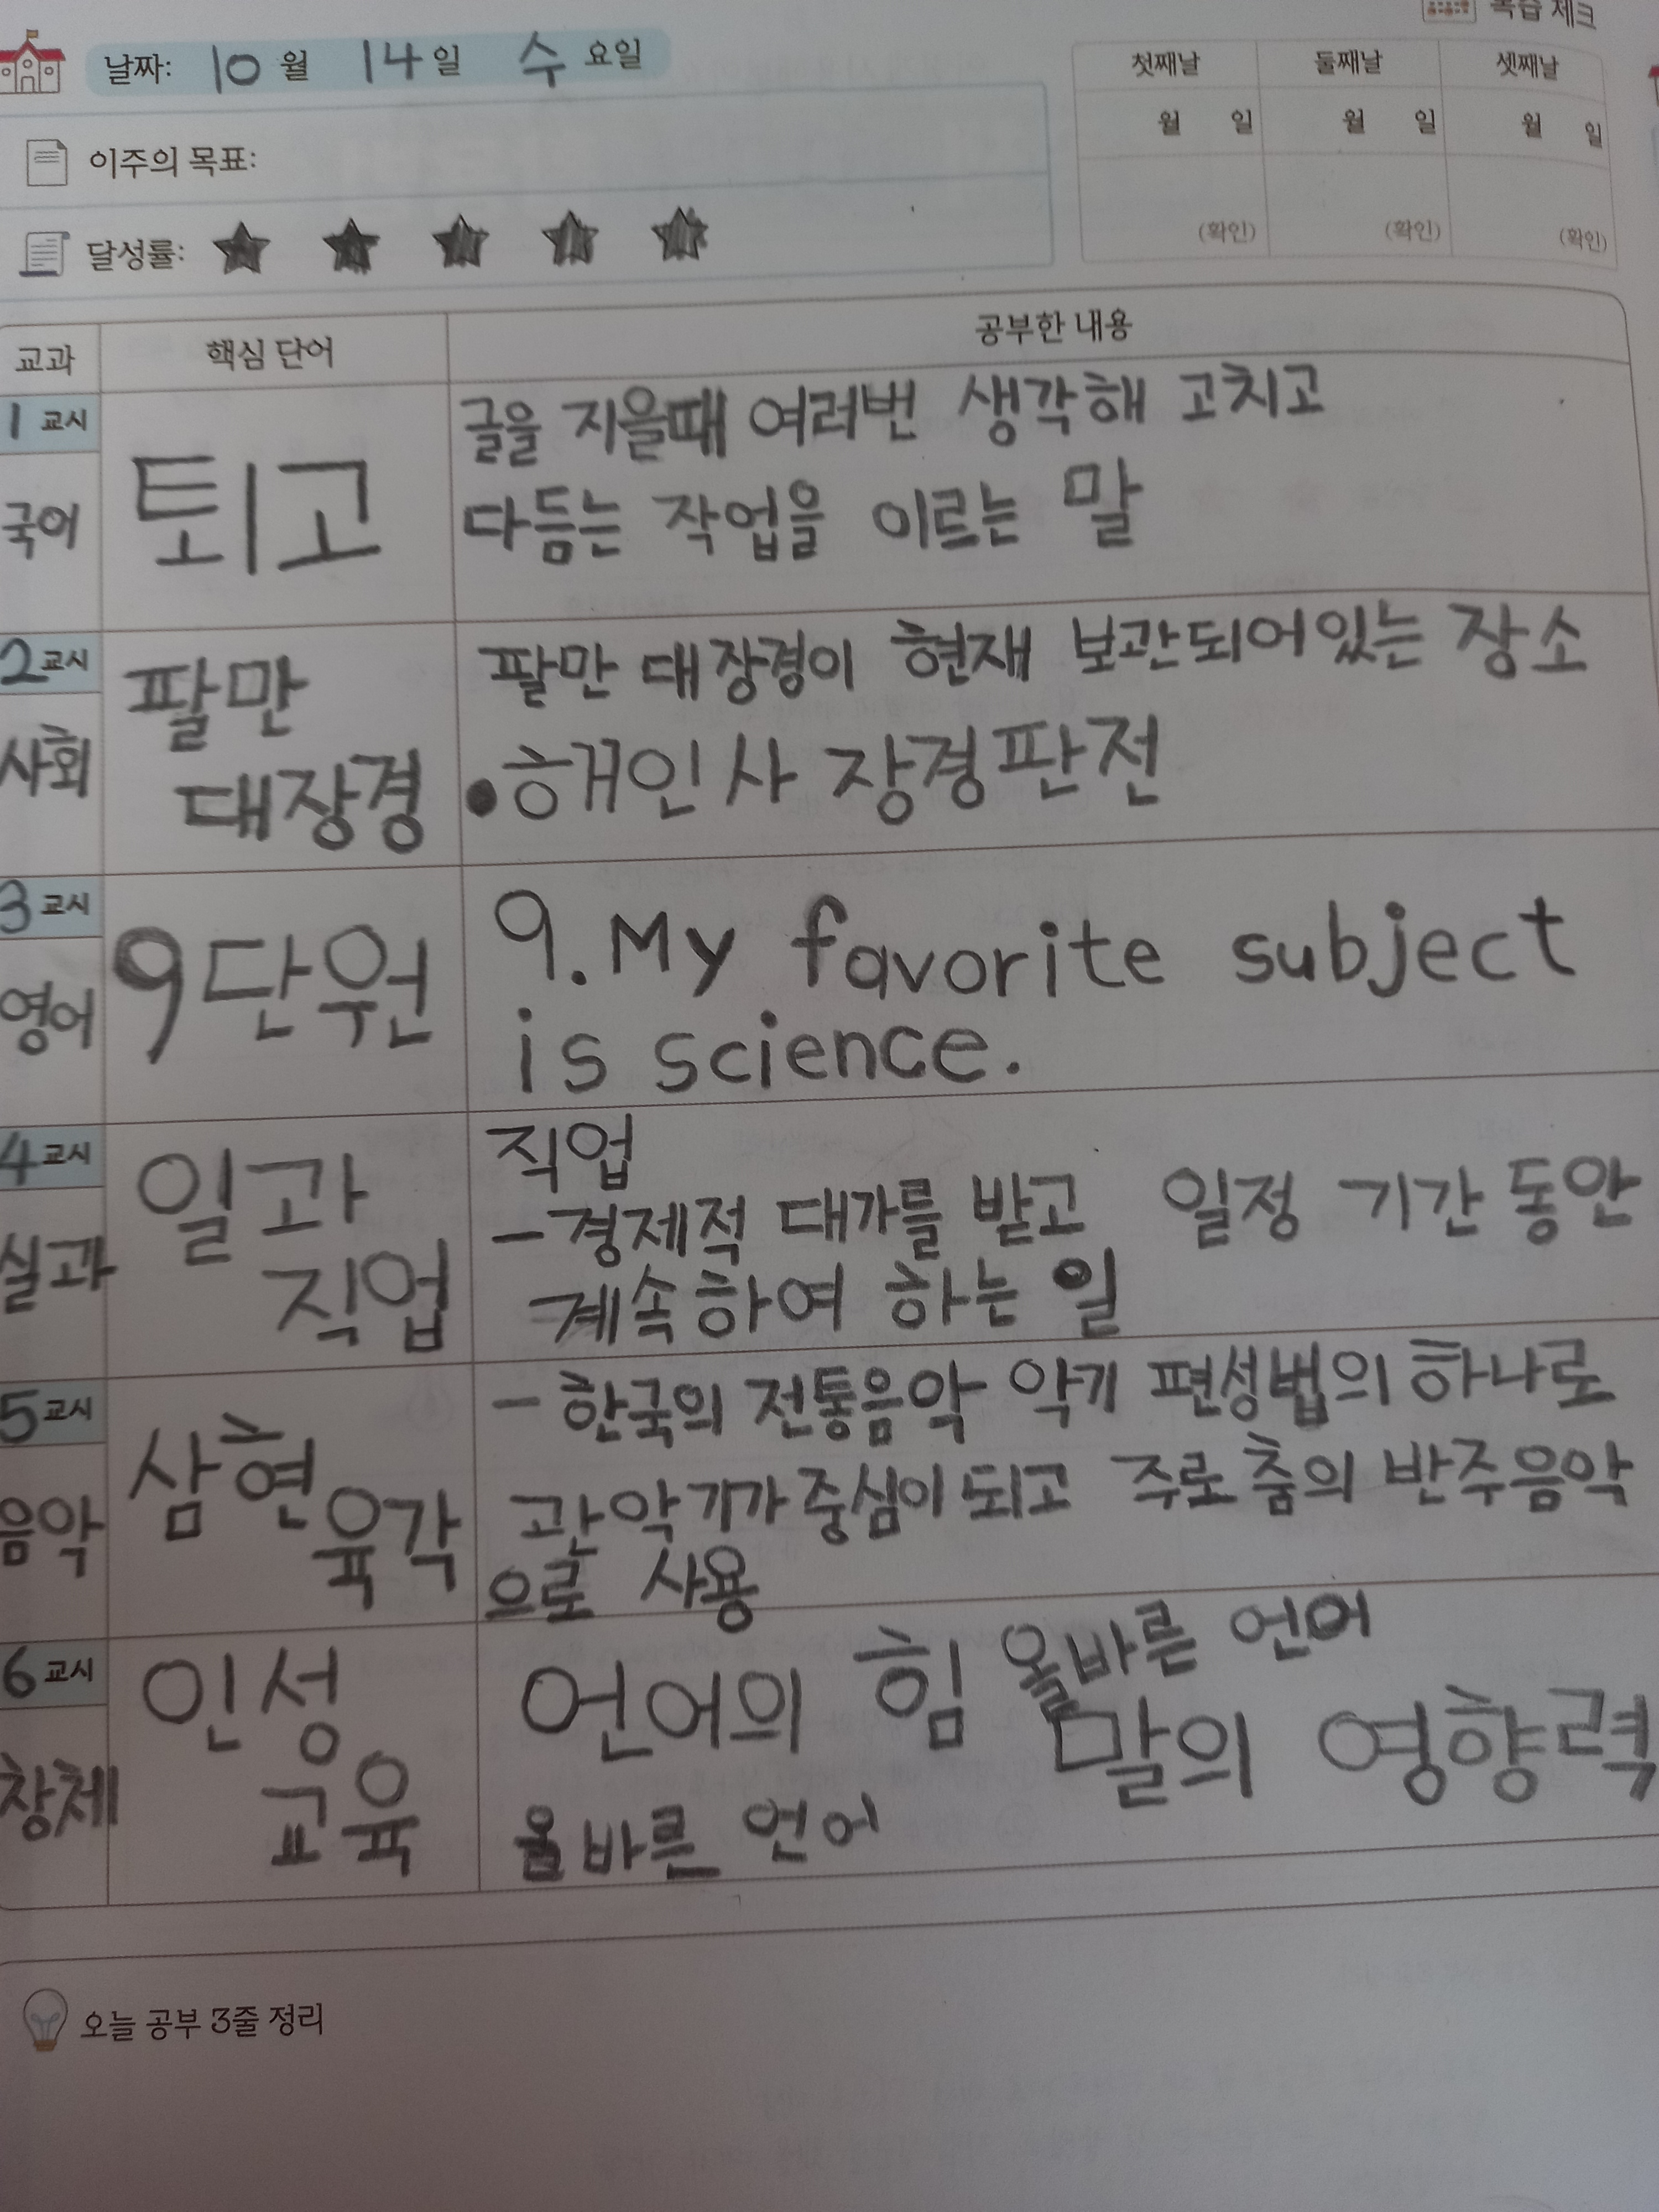 복습 체크
날짜: 10월 14일 수요일
첫째날 둘째날 셋째날
월 일 월 일 월 일
이주의 목표:
(확인) (확인) (확인)
달성률:
교과 핵심 단어 공부한 내용
1교시
국어
퇴고
글을 지을때 여러번 생각해 고치고
다듬는 작업을 이르는 말
2교시
사회
팔만
대장경
팔만 대장경이 현재 보관되어있는 장소
•해인사 장경판전
3교시
영어
9단원
9. My favorite subject
is science.
4교시
실과
일과
직업
직업
-경제적 대가를 받고 일정 기간 동안
계속하여 하는 일
5교시
음악
삼현
육각
- 한국의 전통음악 악기 편성법의 하나로
관악기가 중심이 되고 주로 춤의 반주음악
으로 사용
6교시
창체
인성
교육
언어의 힘 올바른 언어
말의 영향력
올바른 언어
오늘 공부 3줄 정리